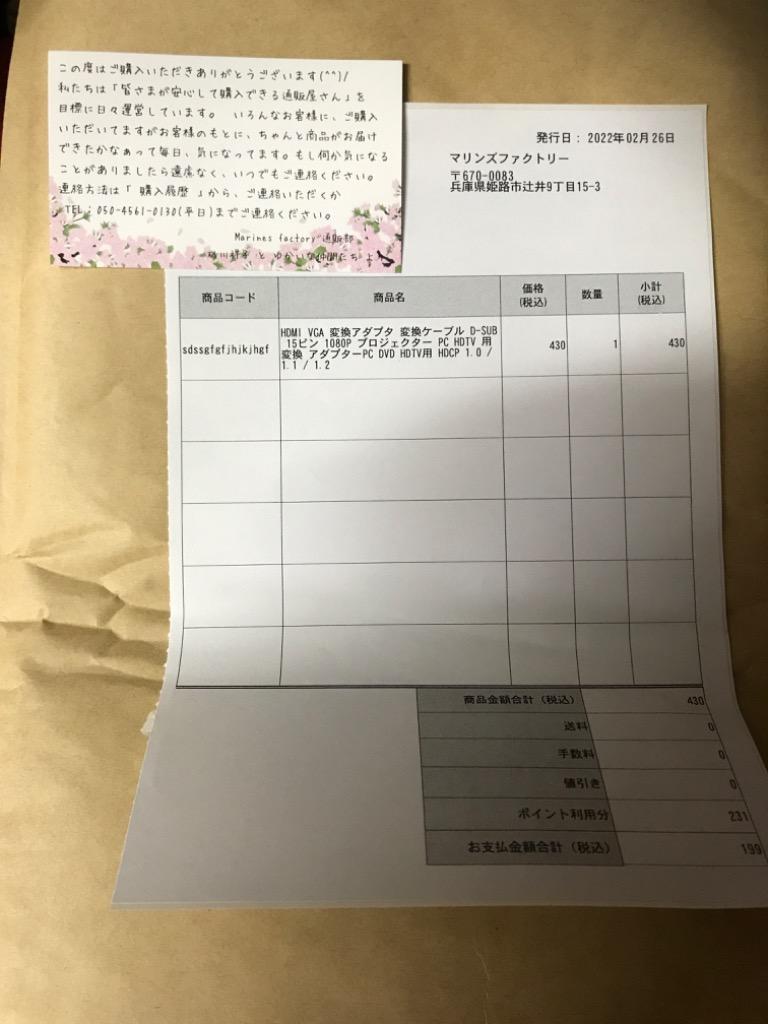 この度はご購入いただきありがとうございます(^^)/
私たちは「皆さまが安心して購入できる通販屋さん」を
目標に日々運営しています。 いろんなお客様に、ご購入
いただいてますがお客様のもとに、ちゃんと商品がお届け
できたかなぁって毎日、気になってます。もし何か気になる
ことがありましたら遠慮なく、いつでもご連絡ください。
連絡方法は「 購入履歴 」から、ご連絡いただくか
TEL：050-4561-0130(平日)までご連絡ください。
Marines factory 通販部
とゆかいな仲間たち より
発行日： 2022年02月26日
マリンズファクトリー
〒670-0083
兵庫県姫路市辻井9丁目15-3
商品コード 商品名 価格(税込) 数量 小計(税込)
sdssgfgfjhjkjhgf
HDMI VGA 変換アダプタ 変換ケーブル D-SUB
15ピン 1080P プロジェクター PC HDTV 用
変換 アダプターPC DVD HDTV用 HDCP 1.0 /
1.1 / 1.2
430 1 430
商品金額合計（税込） 430
送料 0
手数料 0
値引き 0
ポイント利用分 231
お支払金額合計（税込） 199